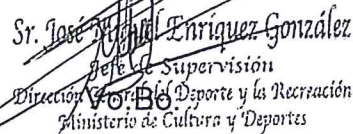 Sr. José Miguel Enríquez González
Jefe de Supervisión
Dirección General del Deporte y la Recreación
Vo.Bo.
Ministerio de Cultura y Deportes